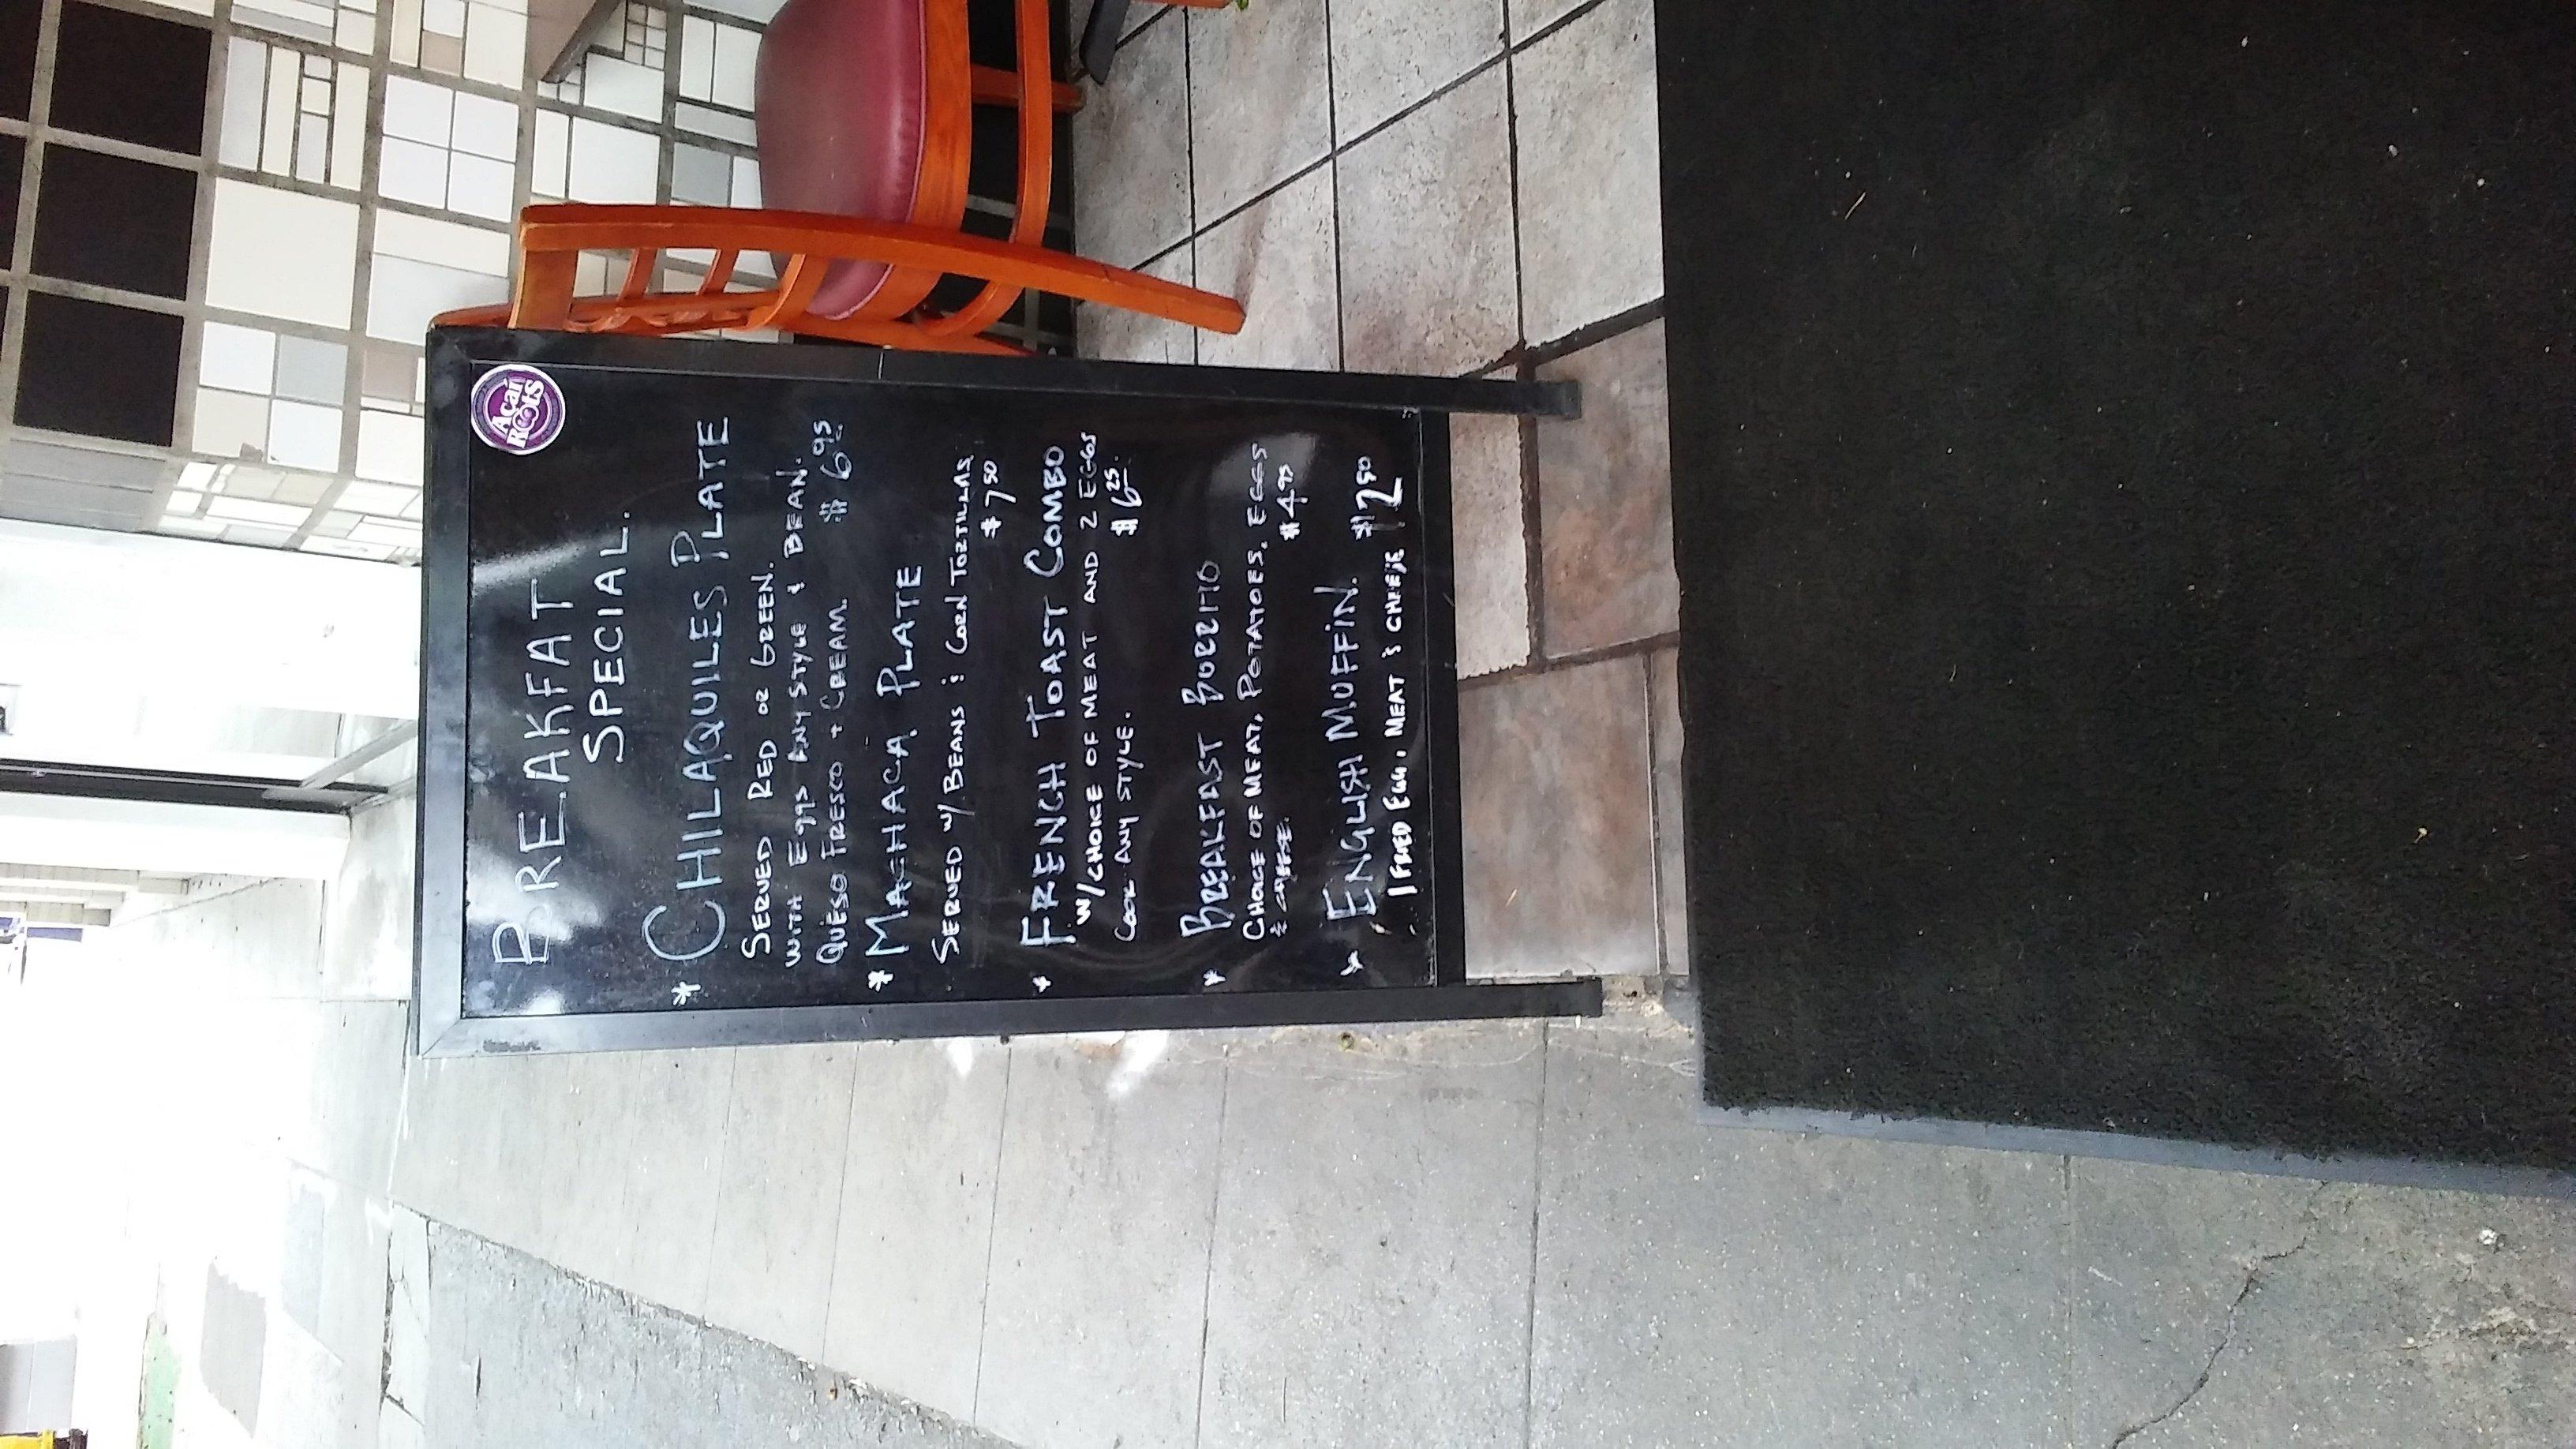 Acai
Roots
BREAKFAT
SPECIAL.
* CHILAQUILES PLATE
SERVED RED OR GREEN.
WITH Eggs ANY STYLE & BEAN.
QUESO FRESCO + CREAM. $6.95
* MACHACA PLATE
SERVED W/ BEANS & CORN TORTILLAS
$7.50
* FRENCH TOAST COMBO
W/CHOICE OF MEAT AND 2 EGGS
COOK ANY STYLE. $6.25
* BREAKFAST BURRITO
CHOICE OF MEAT, POTATOES, EGGS
& CHEESE. $4.95
* ENGLISH MUFFIN.
1 FRIED EGG, MEAT & CHEESE